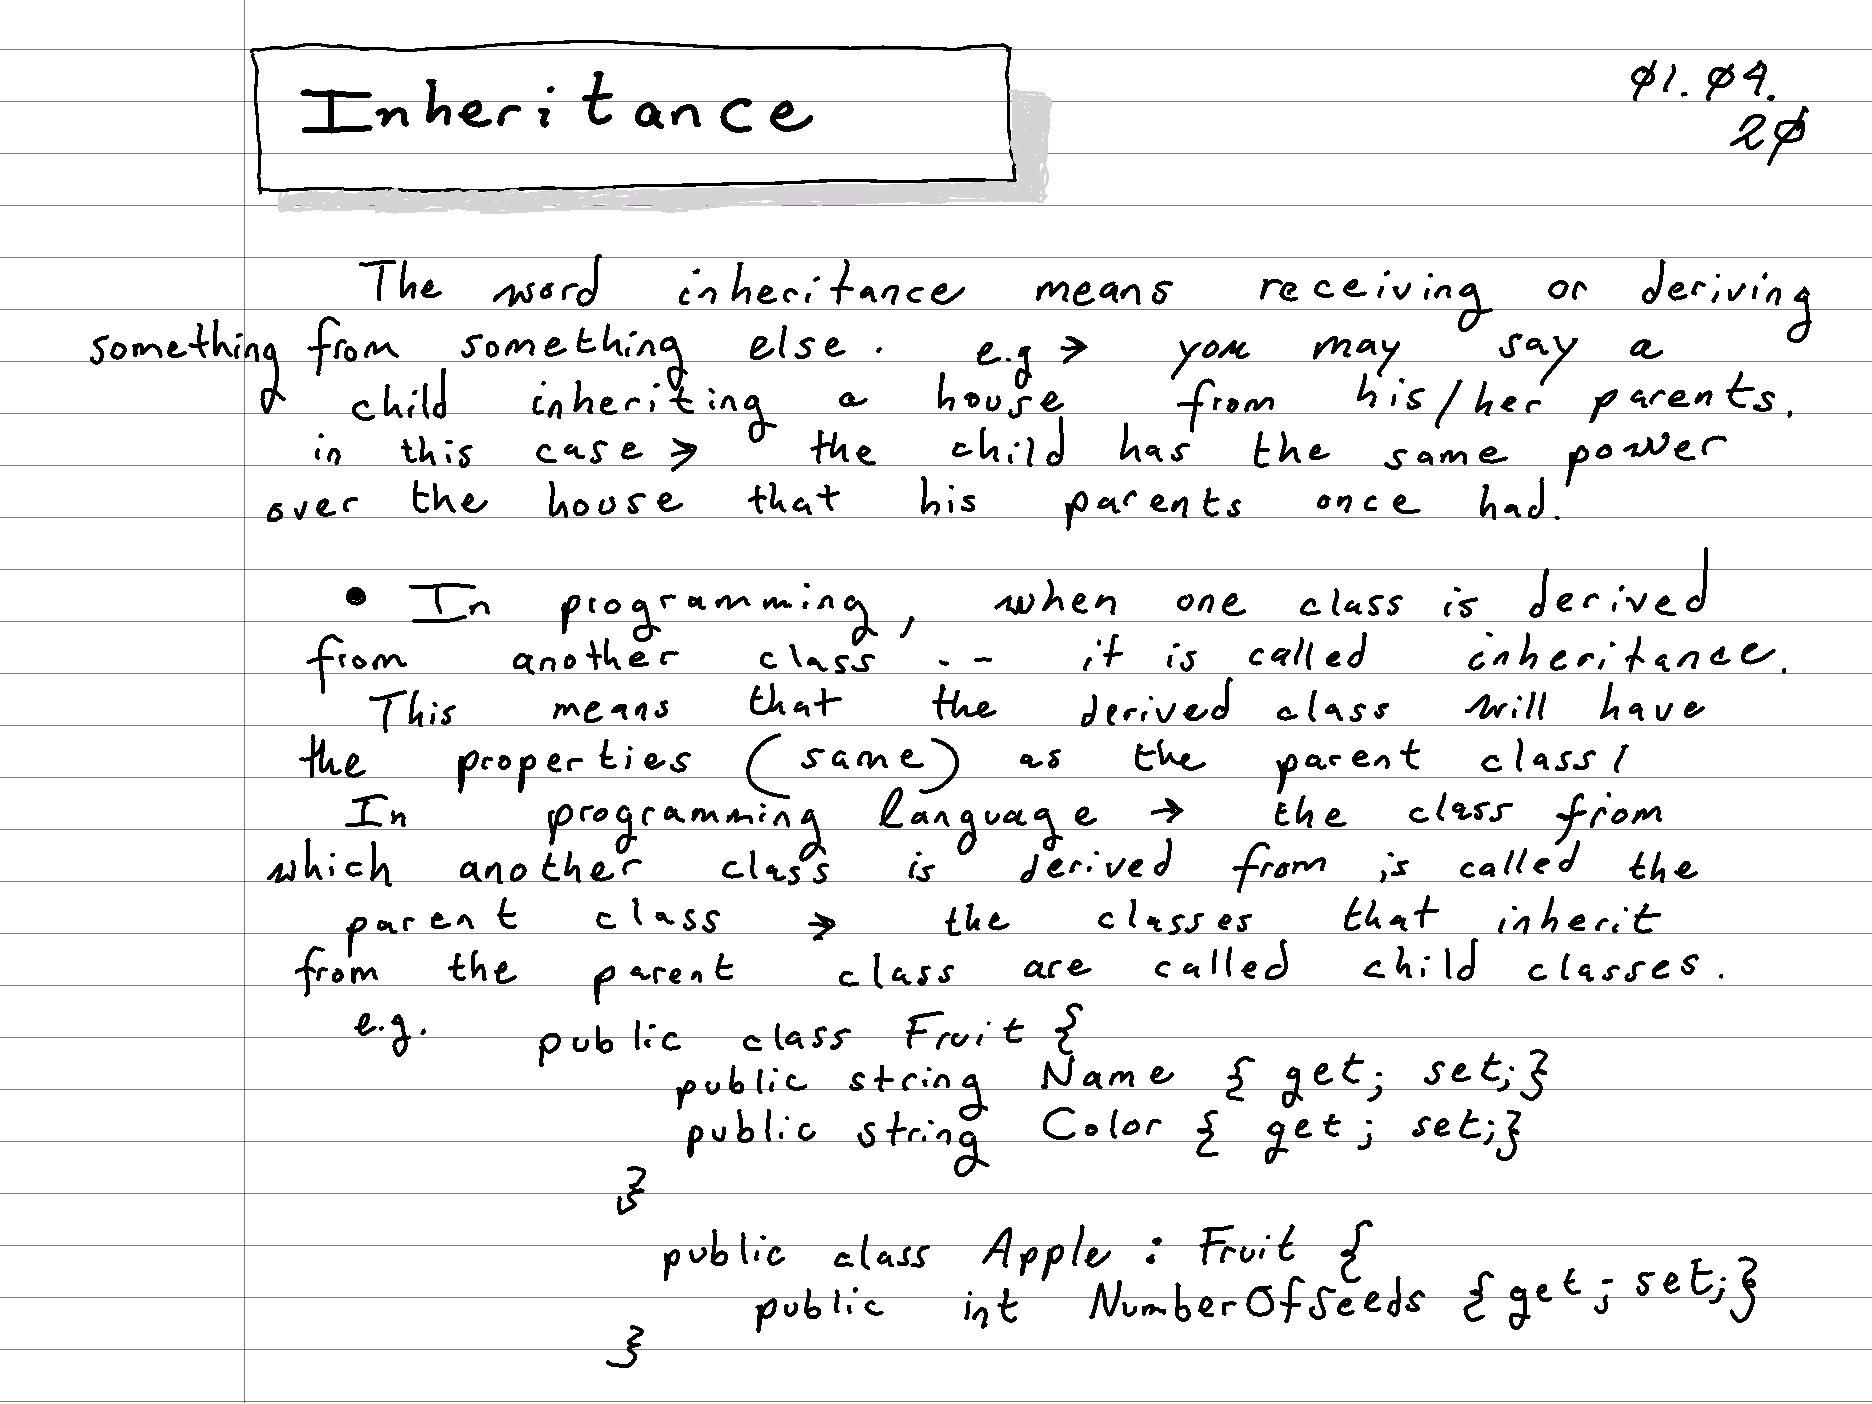 Inheritance
01.04.
20
The word inheritance means receiving or deriving
something from something else. e.g → you may say a
child inheriting a house from his/her parents.
in this case → the child has the same power
over the house that his parents once had.
• In programming, when one class is derived
from another class .. it is called inheritance.
This means that the derived class will have
the properties (same) as the parent class/
In programming language → the class from
which another class is derived from is called the
parent class → the classes that inherit
from the parent class are called child classes.
e.g. public class Fruit {
public string Name { get; set;}
public string Color { get; set;}
}
public class Apple : Fruit {
public int NumberOfSeeds { get; set;}
}